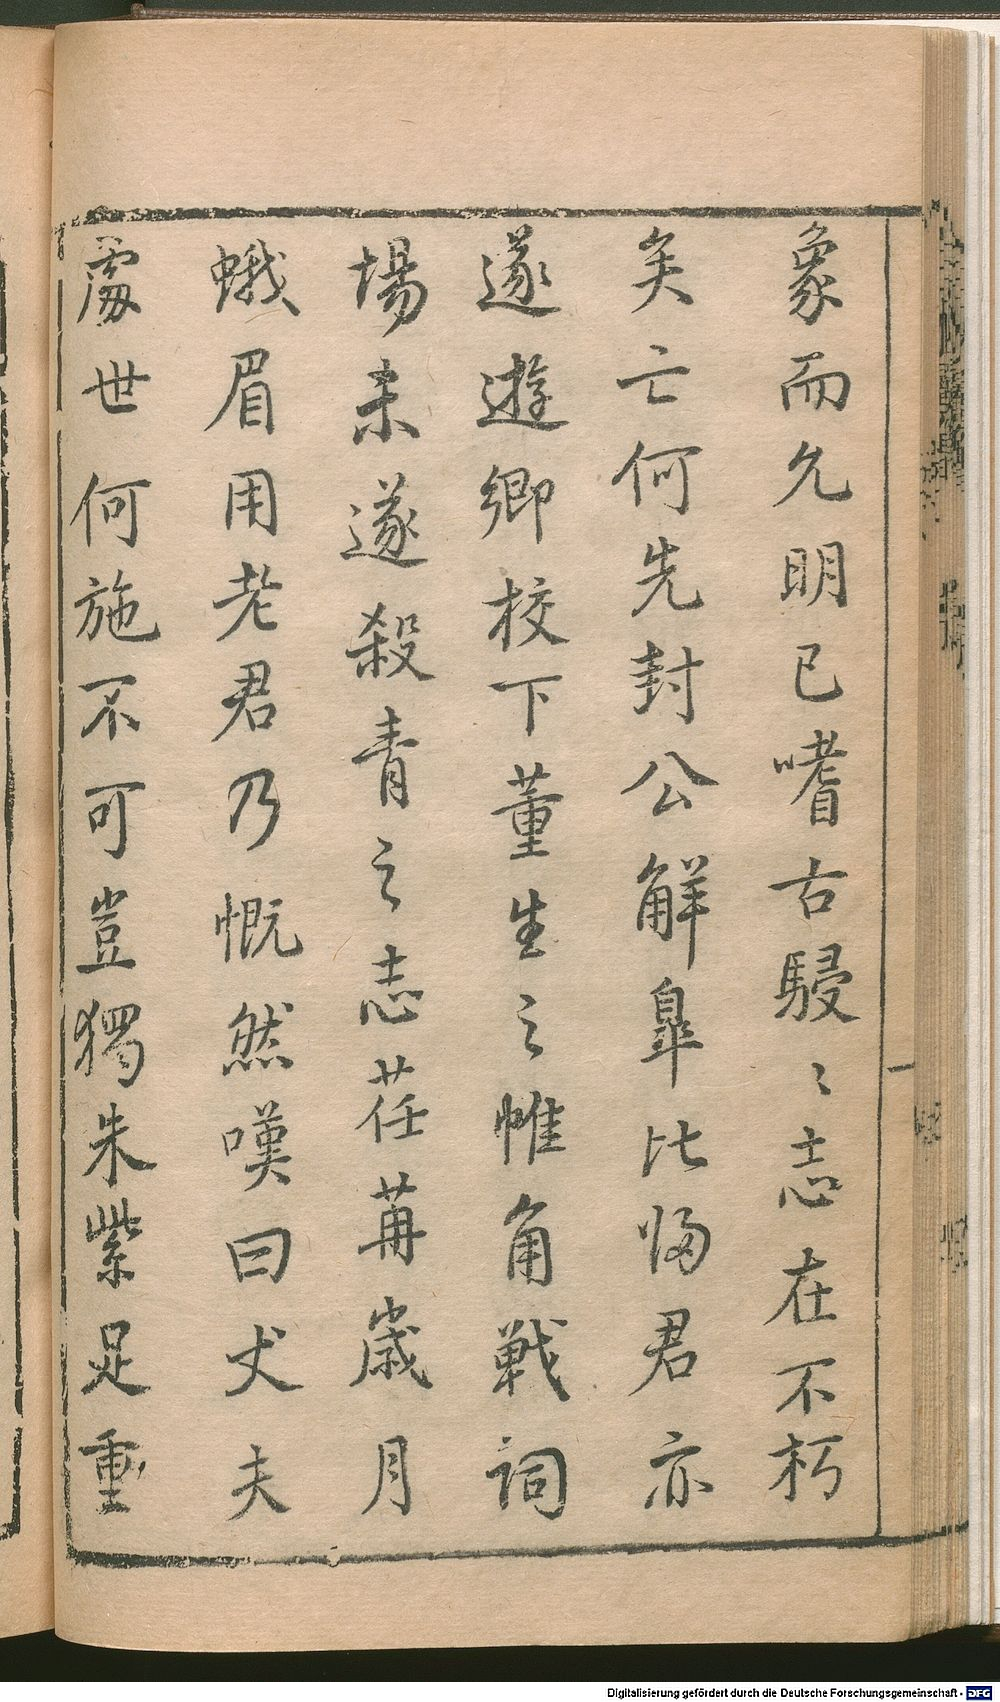 象而允明已嗜古駸〻志在不朽
矣亡何先封公解臯比歸君亦
遂遊鄉校下董生之帷角戰詞
場未遂殺青之志荏苒歲月
蛾眉用老君乃慨然嘆曰丈夫
處世何施不可豈獨朱紫足重
Digitalisierung gefördert durch die Deutsche Forschungsgemeinschaft - DFG